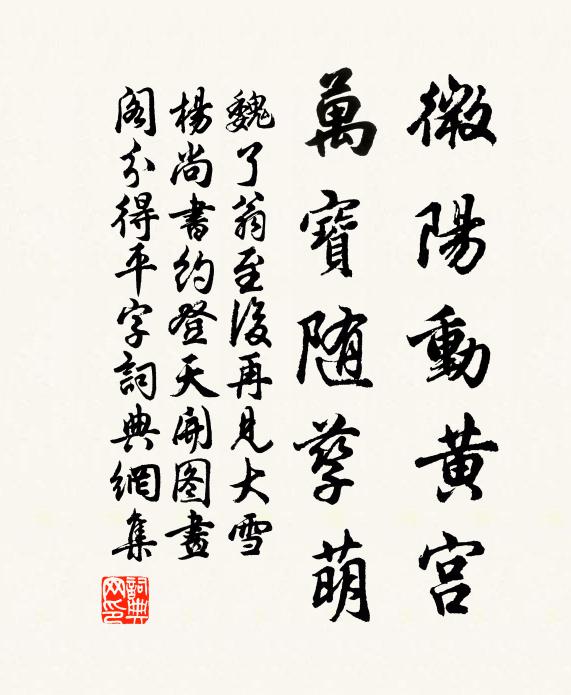 微陽動黄宫
萬寶随孽萌
魏了翁至後再見大雪
楊尚書約登天開图畫
阁分得平字詞典網集
詞典网印